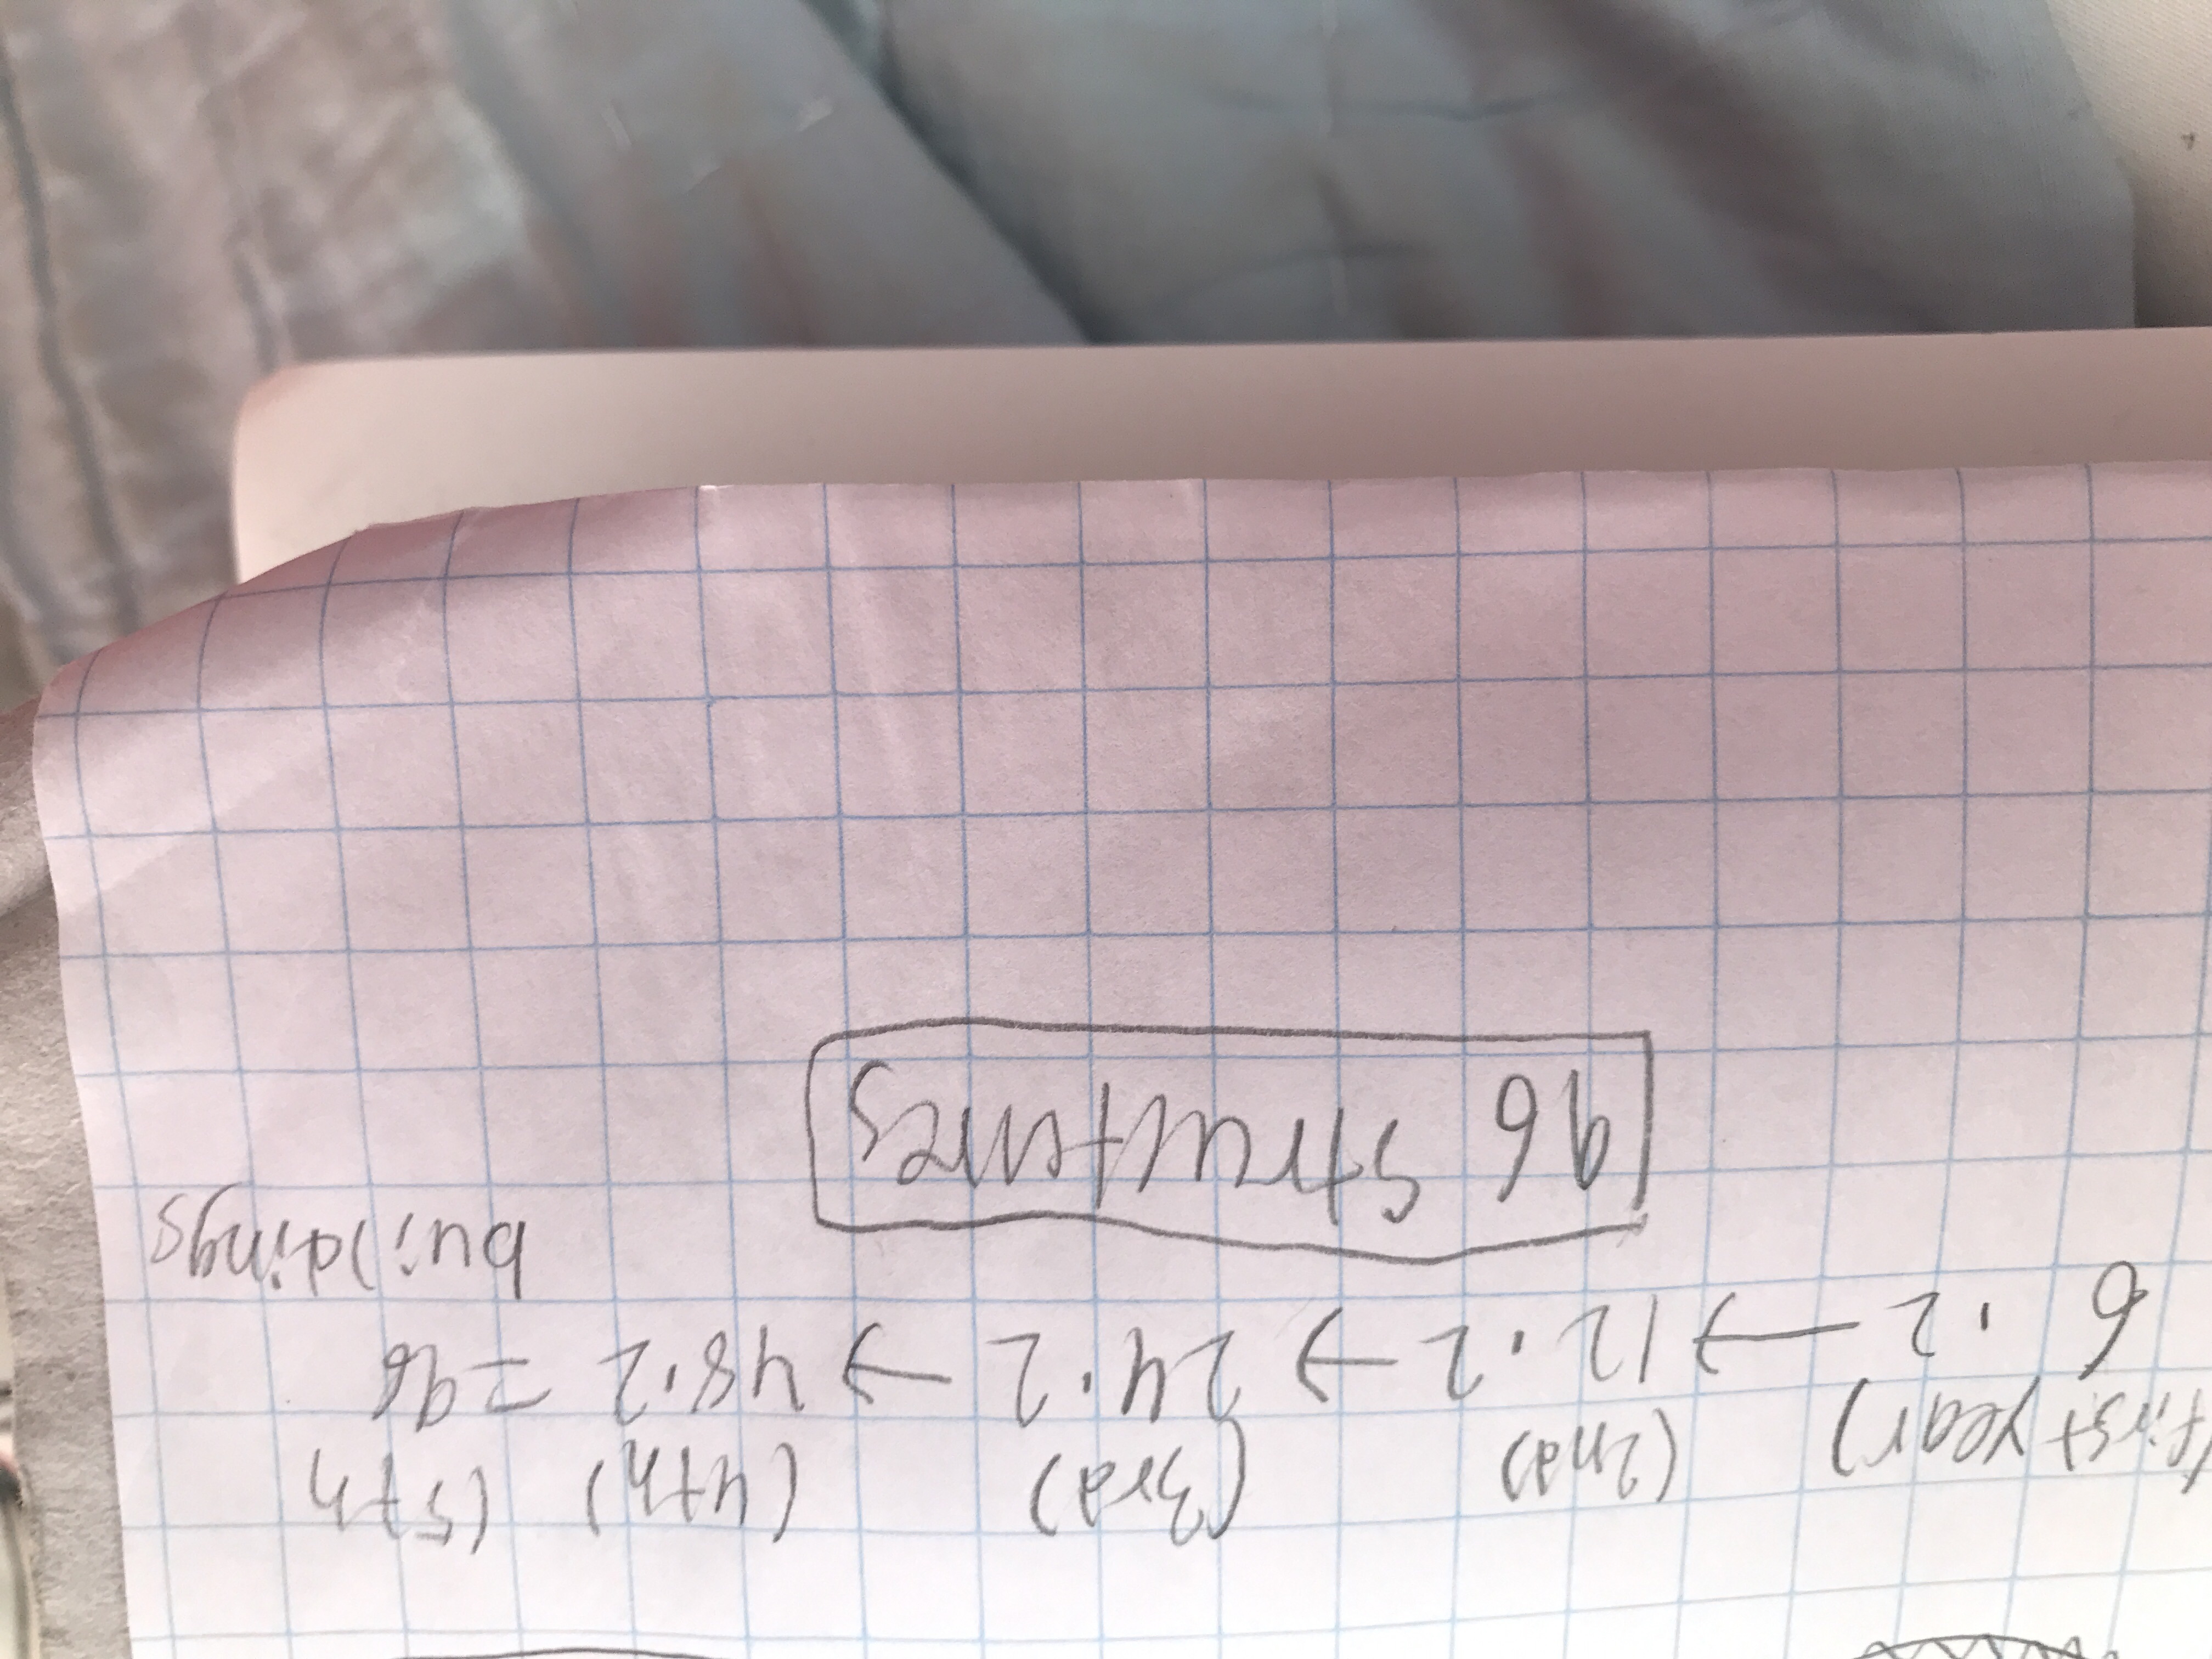 (first year) (2nd) (3rd) (4th) (5th
6 · 2 → 12 · 2 → 24 · 2 → 48 · 2 = 96
buildings
96 structures